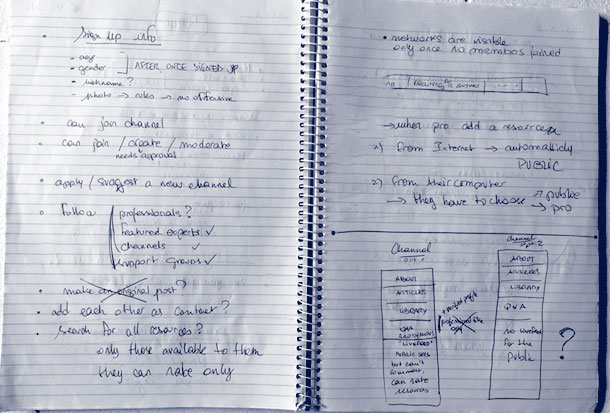 • Sign up info
- age
- gender
AFTER ONCE SIGNED UP
- nickname?
- photo → rules → no offensive
• can join channel
• can join / create / moderate
needs approval
• apply / suggest a new channel
• Follow
professionals?
Featured experts ✓
channels ✓
support groups ✓
• make an original post?
• add each other as contact?
• search for all resources?
only those available to them
they can rate only
• networks are visible
only once no members joined
→ when pro add a resource
1) From Internet → automatically
PUBLIC
2) From their computer
→ they have to choose → public
→ pro
Channel
ABOUT
ARTICLES
LIBRARY
Q&A
ANONYMOUS
"LIVEFEED"
PUBLIC sees
but can't
comment,
can rate
resources
channel
opt. 2
ABOUT
ARTICLES
LIBRARY
Q&A
no
for the
public
?